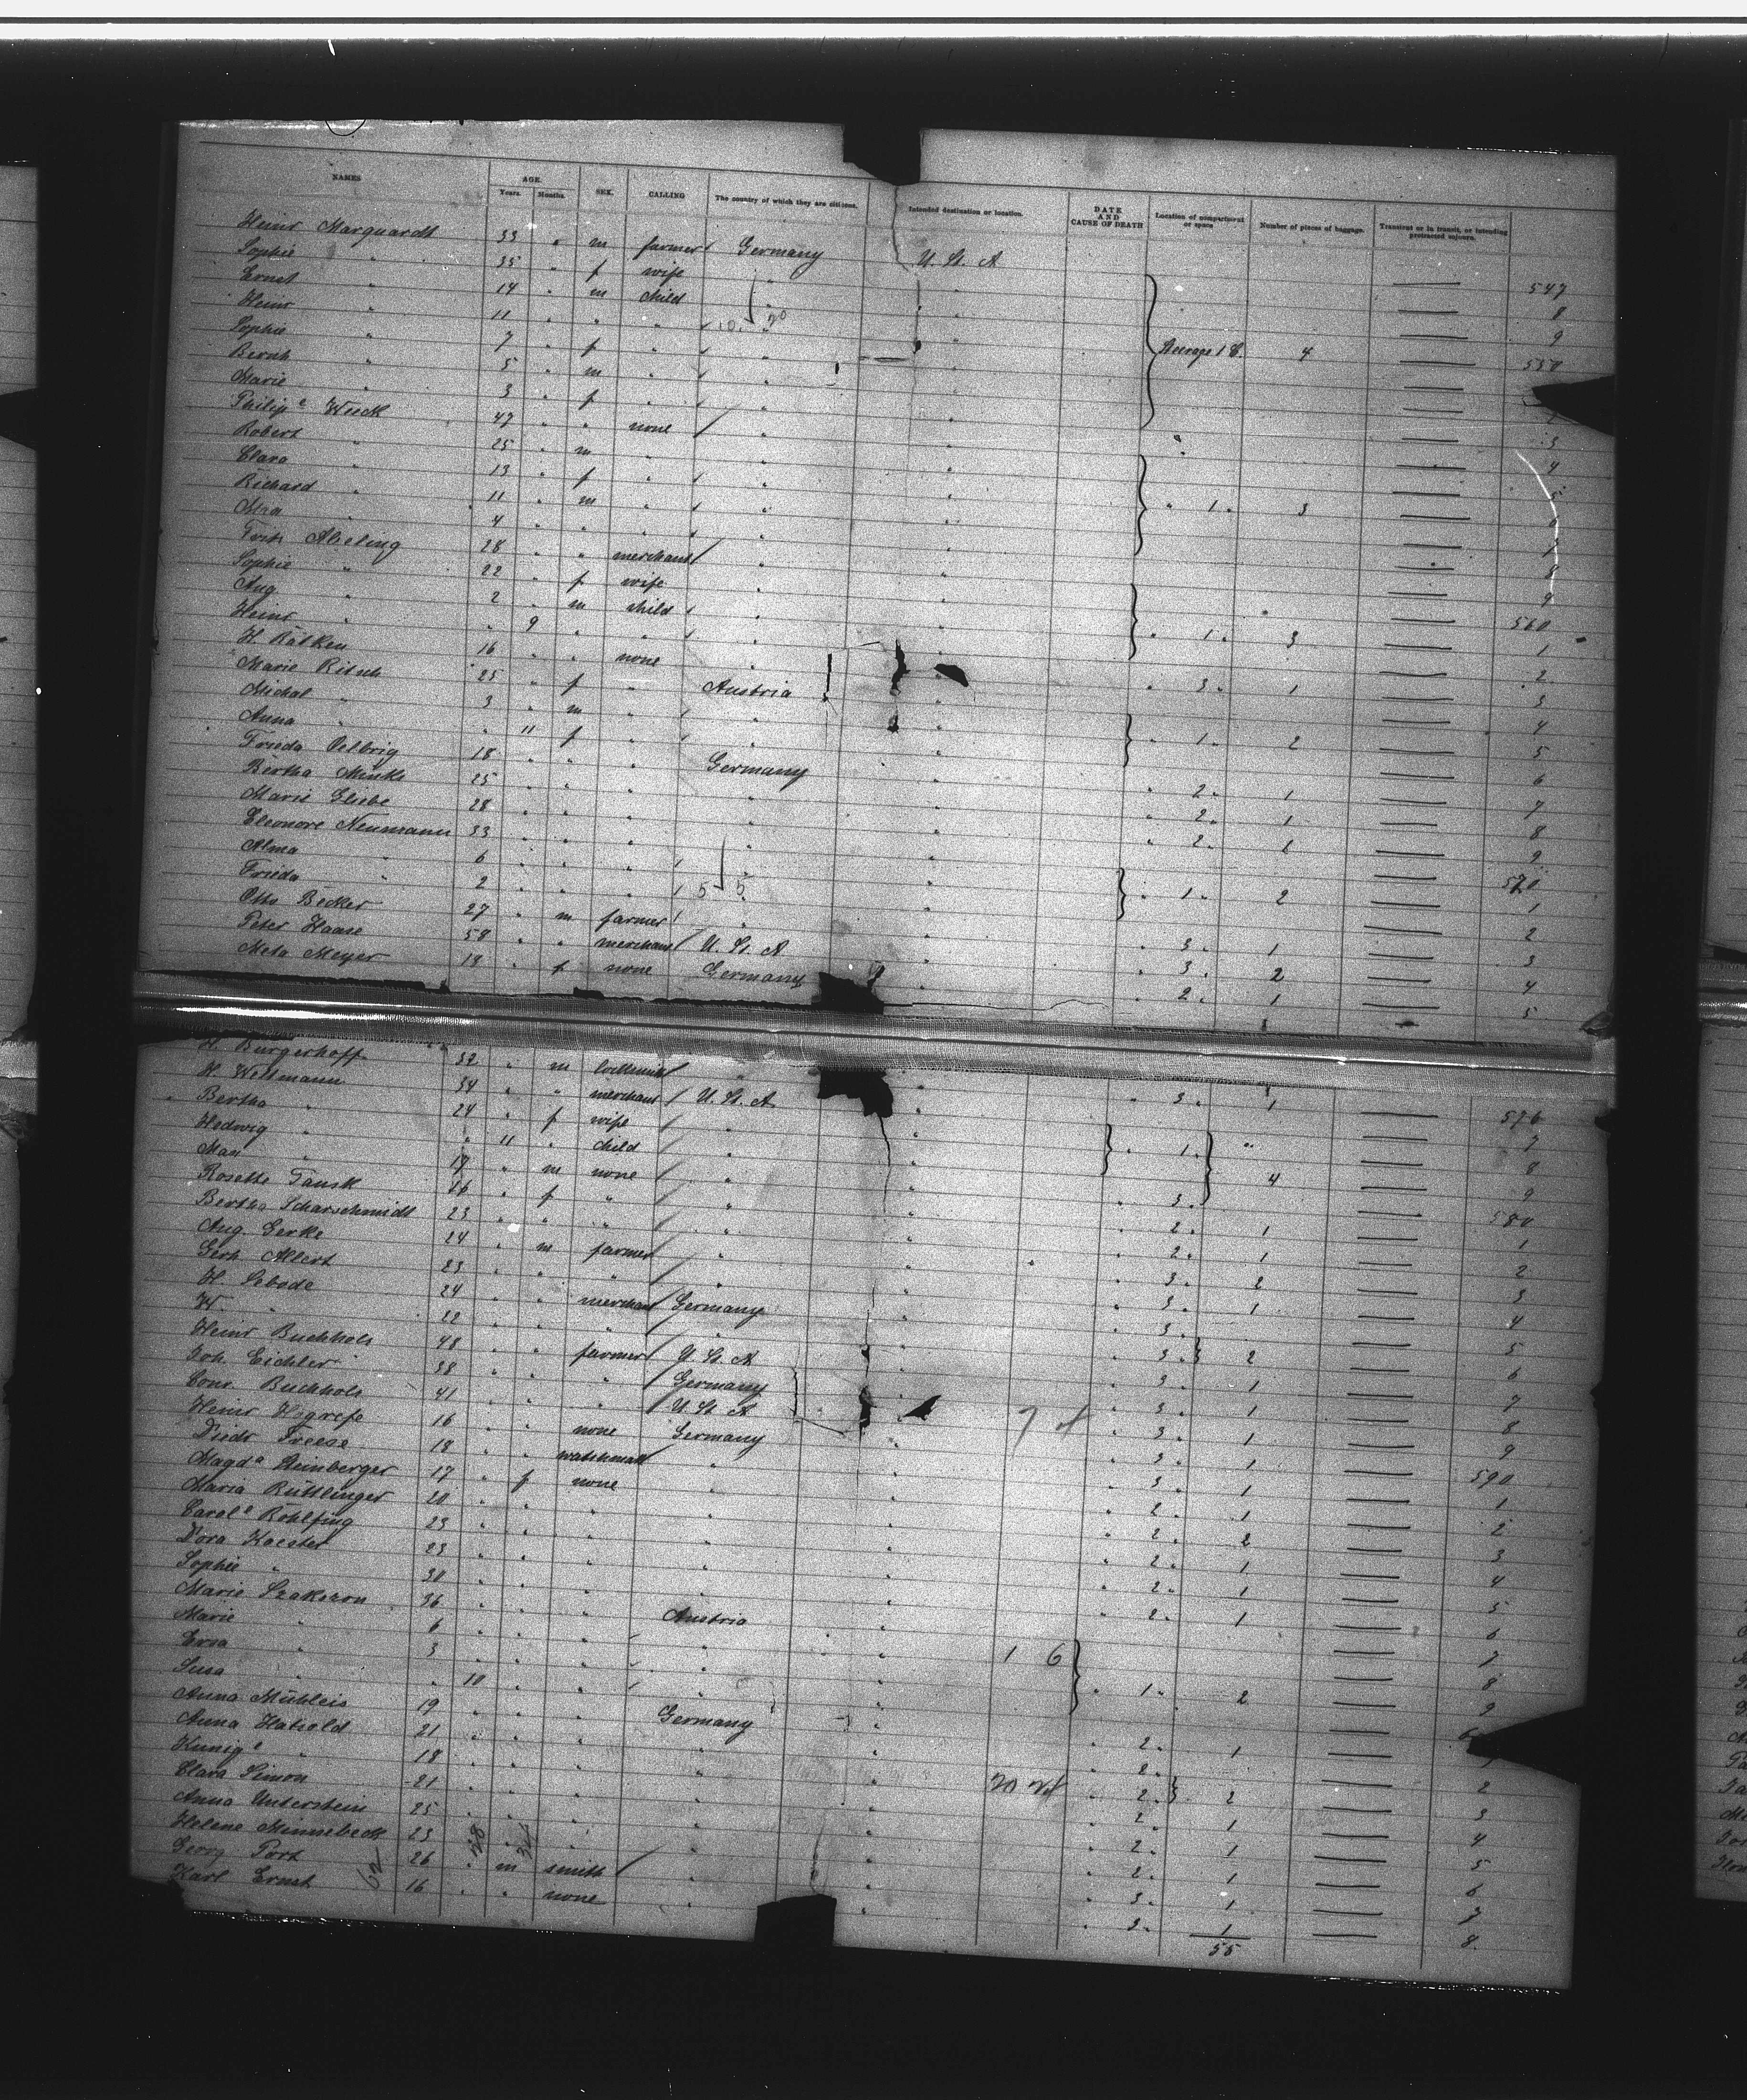 NAMES AGE. Years. Months. SEX. CALLING The country of which they are citizens. Intended destination or location. DATE AND CAUSE OF DEATH Location of compartment or space Number of pieces of baggage. Transient or in transit, or intending protracted sojourn.
Heinr Marquardt 33 " m farmer Germany U. St. A 547
Sophie " 35 " f wife " " 8
Ernst " 14 " m child " " 9
Heinr " 11 " " " " "
Sophie " 7 " f " " " Steerage 1 4
Bernh " 5 " m " " "
Marie " 3 " f " " " 3
Philip e Wieck 47 " " none " " 4
Robert " 25 " m " " "
Clara " 13 " f " " "
Richard " 11 " m " " " " 1 " 3
" 4 " " " " "
Abeling 28 " " merchant " " 9
Sophie " 22 " f wife " " 560
Aug " 2 " m child " " 1
Heinr " " 9 " " " " " 1 " 3 2
H. Rälken 16 " " none " " " 3 " 1 3
Marie Ritsch 25 " f " Austria " 4
Michal " 3 " m " " " " 1 " 2 5
Anna " " 11 f " " " 6
Frieda Oelbrig 18 " " " Germany " " 2 " 1 7
Bertha Minke 25 " " " " " " 2 " 1 8
Marie Gliebe 28 " " " " " " 2 " 1 9
Eleonore Neumann 33 " " " " " 570
Alma " 6 " " " " " " 1 " 2 1
Frieda " 2 " " " 5 5 " 2
Otto Becker 27 " m farmer " " " 3 " 1 3
Peter Haase 58 " " merchant U. St. A " " 3 " 2 4
Meta Meyer 18 " f none Germany " 2 " 1 5
H. Burgerhoff 32 " m locksmith " " " 3 " 1 576
H. Wellmann 34 " " merchant U. St. A " 7
Bertha " 24 " f wife " " " 1 " " 8
Hedwig " " 11 " child " " 4 9
Max " 17 " m none " " " 3 " 580
Rosette Tausk 16 " f " " " " 2 " 1 1
Bertha Scharschmidt 23 " " " " " " 2 " 1 2
Aug. Gerke 24 " m farmer " " " 3 " 2 3
Gerh Allert 23 " " " " " " 3 " 1 4
H. Sebode 24 " " merchant Germany " " 3 " 5
W. " 22 " " " " " " 3 " 2 6
Heinr Buchholz 48 " " farmer U. St. A " " 3 " 1 7
Joh. Eichler 38 " " " Germany " " 3 " 1 8
Conr. Buchholz 41 " " " U. St. A " " 3 " 1 9
Heinr Higrefe 16 " " none Germany " " 3 " 1 590
Diedr Freese 18 " " watchmak " " " 3 " 1 1
Magd a Steinberger 17 " f none " " " 2 " 1 2
Maria Rüttlinger 20 " " " " " " 2 " 2 3
Carol e Rohlfing 23 " " " " " " 2 " 1 4
Dora Koester 23 " " " " " " 2 " 1 5
Sophie " 30 " " " " " " 2 " 1 6
Marie 36 " " " Austria " 7
Marie " 6 " " " " " 1 6 8
" 3 " " " " " " 1 " 2 9
Susa " " 10 " " " "
Anna Mühleis 19 " " " Germany " " 2 " 1
Anna Hatzold 21 " " " " " " 2 " 2
Kunig e " 18 " " " " " " 2 " 2 3
Clara Simon 21 " " " " " 2 " 1 4
Anna Unterstein 25 " " " " " " 2 " 1 5
Helene Minnebeck 23 " " " " " " 2 " 1 6
Georg Port 26 " m smith " " " 3 " 1 7
Karl Ernst 16 " " none " " " 3 " 1 8
55